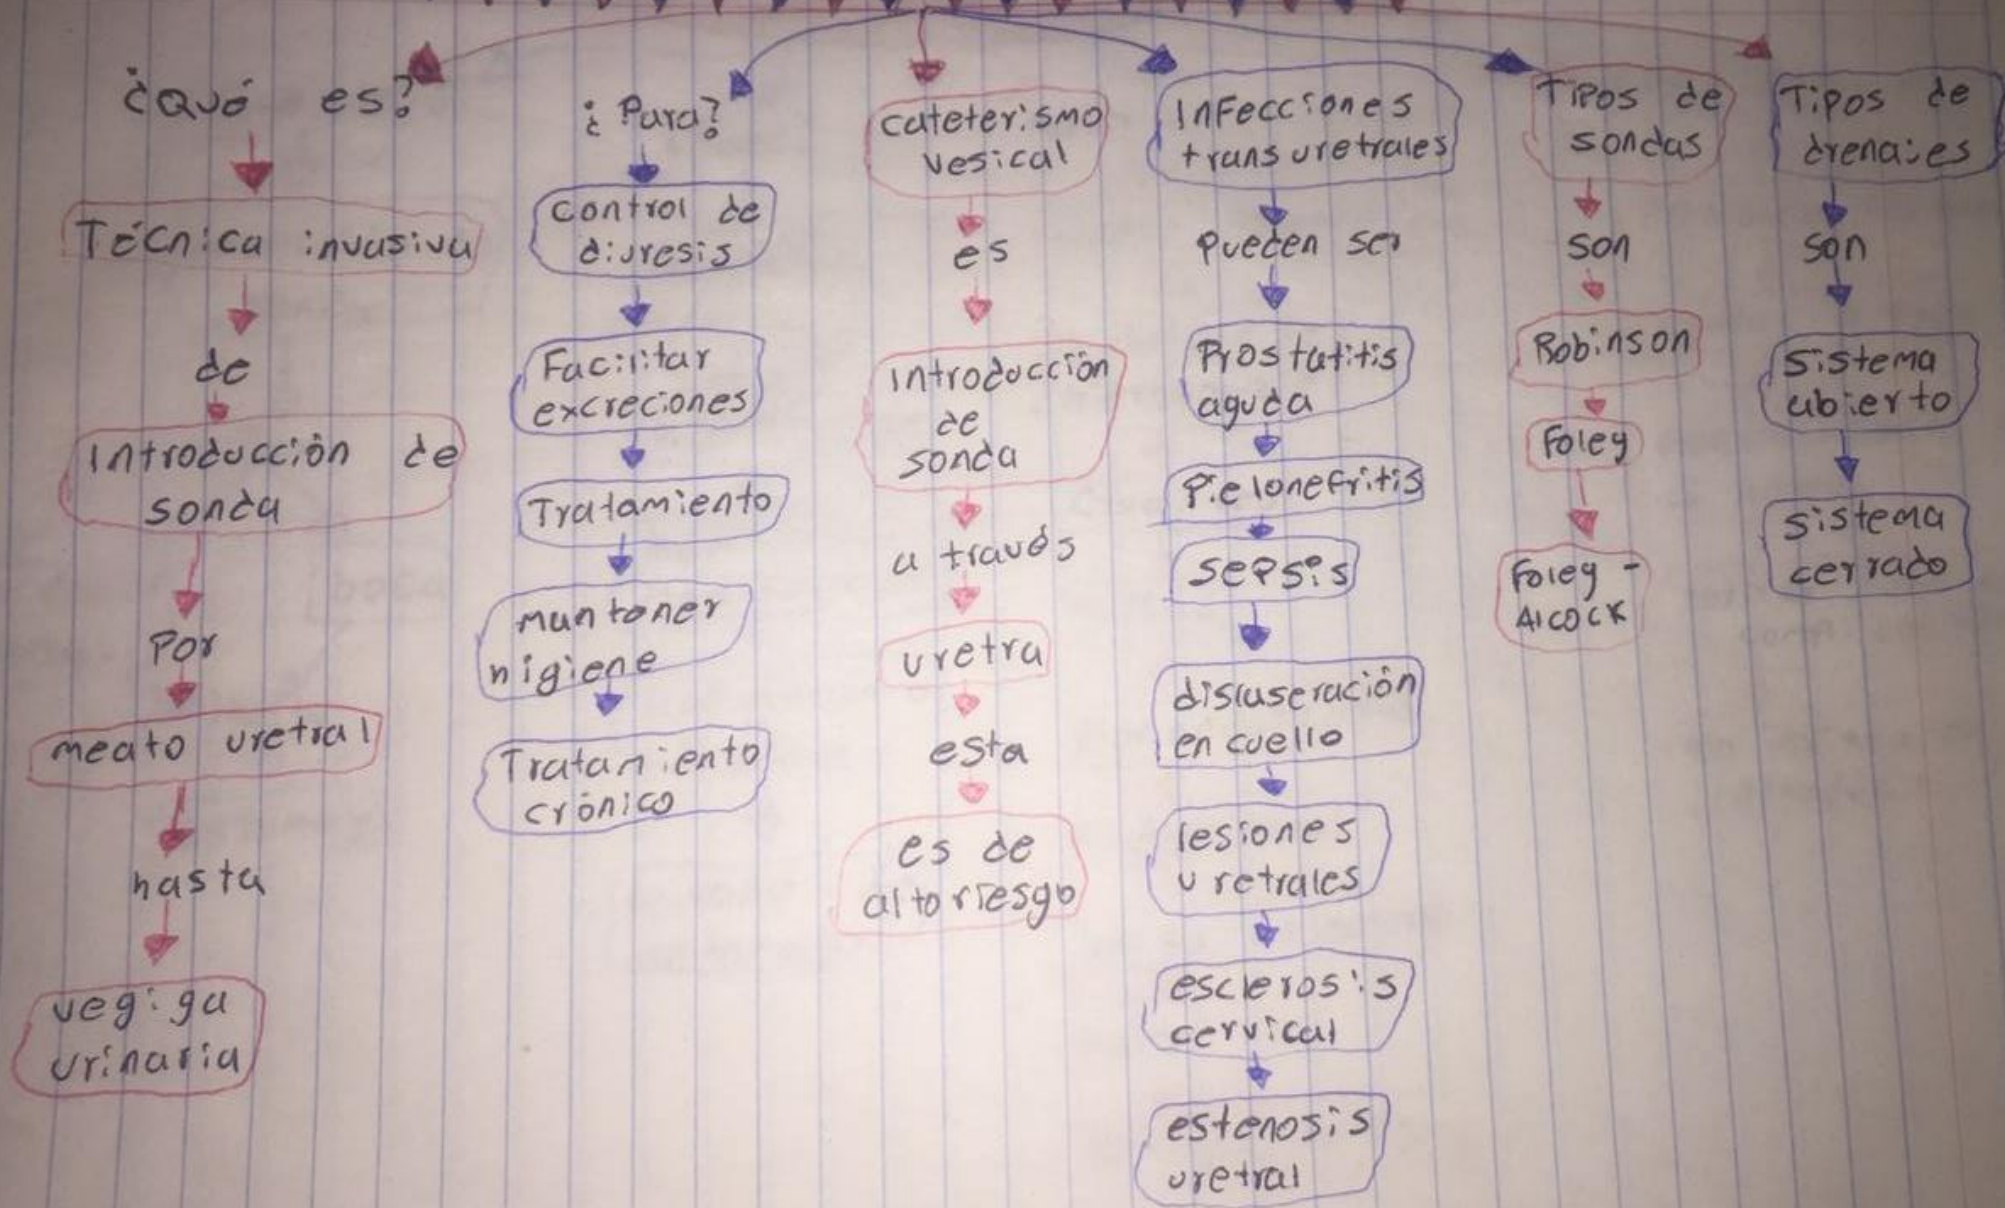 ¿Qué es?
Técnica invasiva
de
Introducción de
sonda
Por
meato uretral
hasta
vegiga
urinaria
¿Para?
control de
diuresis
Facilitar
excreciones
Tratamiento
mantener
higiene
Tratamiento
crónico
cateterismo
vesical
es
introducción
de
sonda
a través
uretra
esta
es de
alto riesgo
Infecciones
transuretrales
pueden ser
Prostatitis
aguda
Pielonefritis
sepsis
en cuello
lesiones
uretrales
esclerosis
cervical
estenosis
uretral
Tipos de
sondas
son
Robinson
Foley
Foley -
Alcock
Tipos de
drenajes
son
sistema
abierto
sistema
cerrado